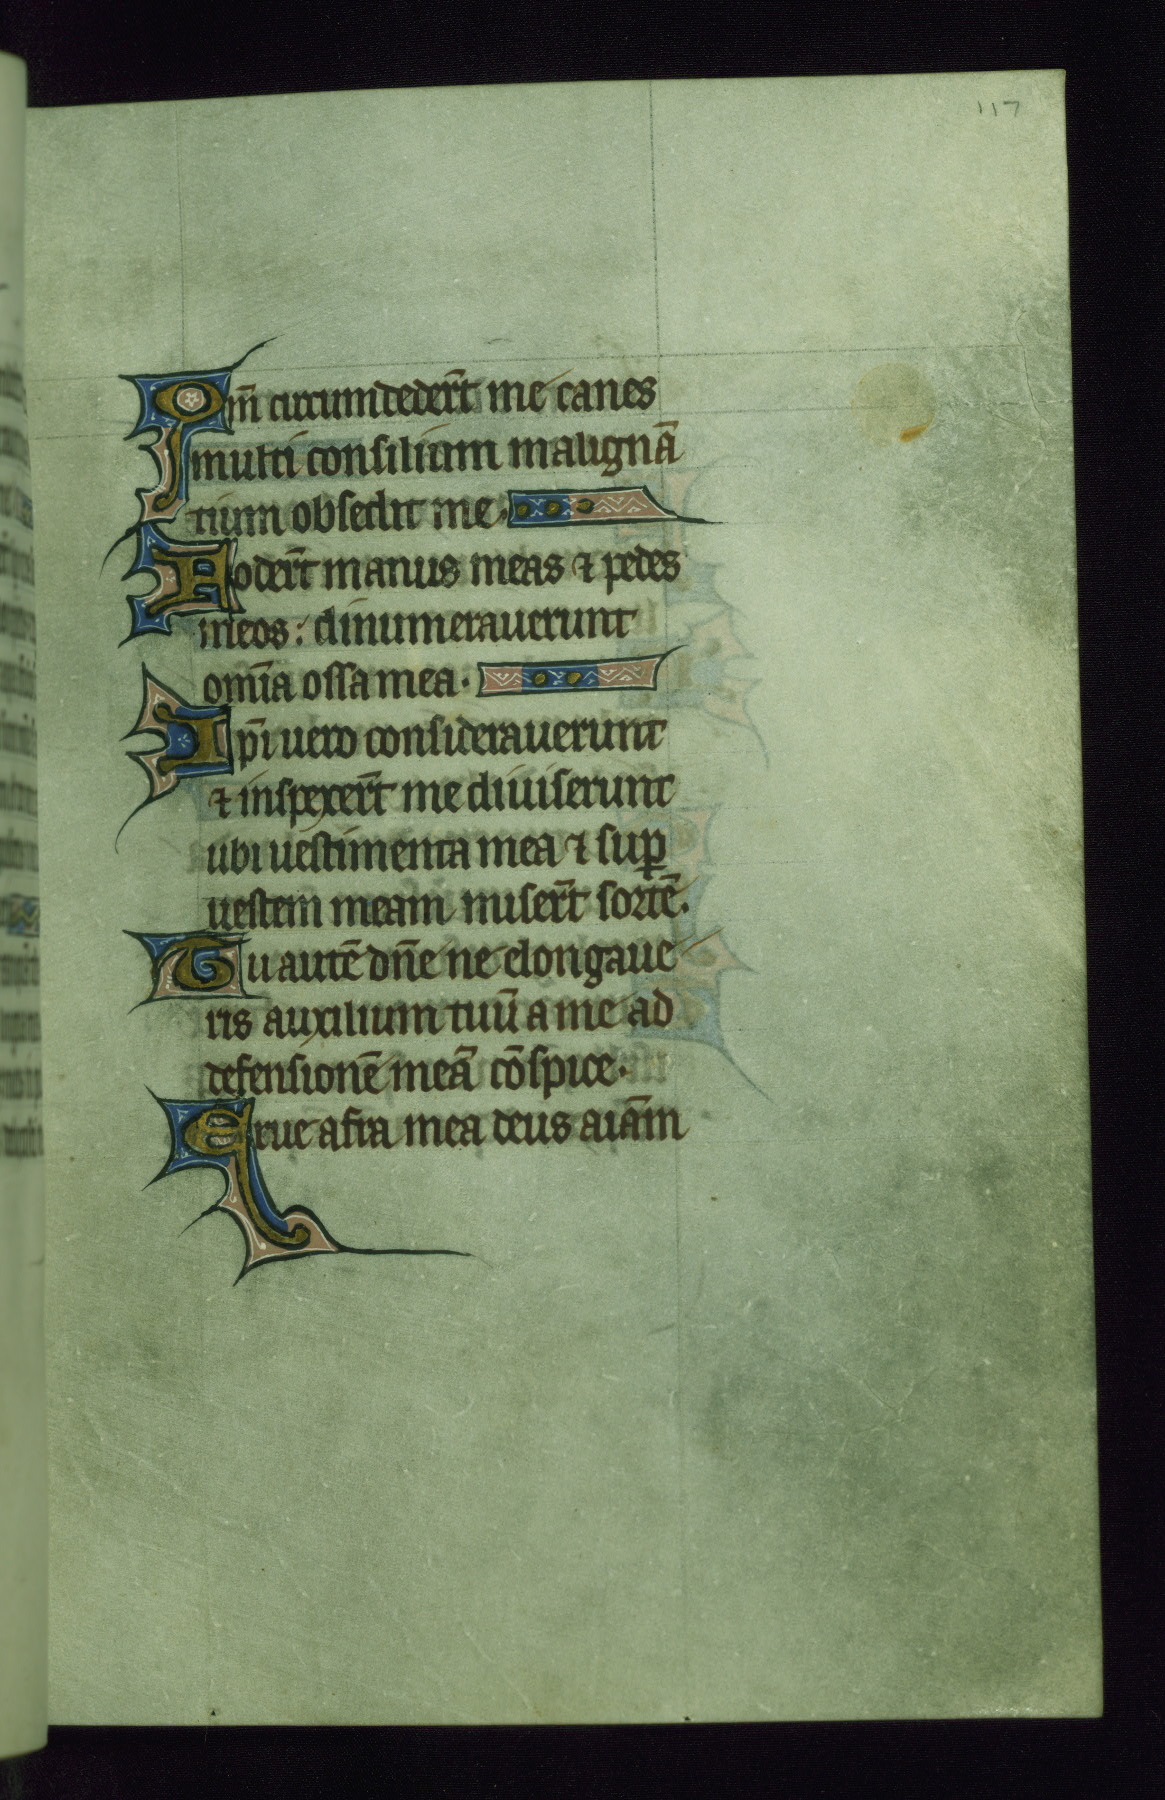 117
Qm̄ circumdeder̄t me canes
multi consilium malignā
tium obsedit me.
Foder̄t manus meas ⁊ pedes
meos: dinumerauerunt
om̄ia ossa mea.
Ip̄i uero considerauerunt
⁊ inspexer̄t me diuiserunt
ubi uestimenta mea ⁊ suꝑ
uestem meam miser̄t sortē.
Tu autē dn̄e ne elongaue
ris auxilium tuū a me ad
defensionē meā cōspice.
Erue a fra mea deus aiām